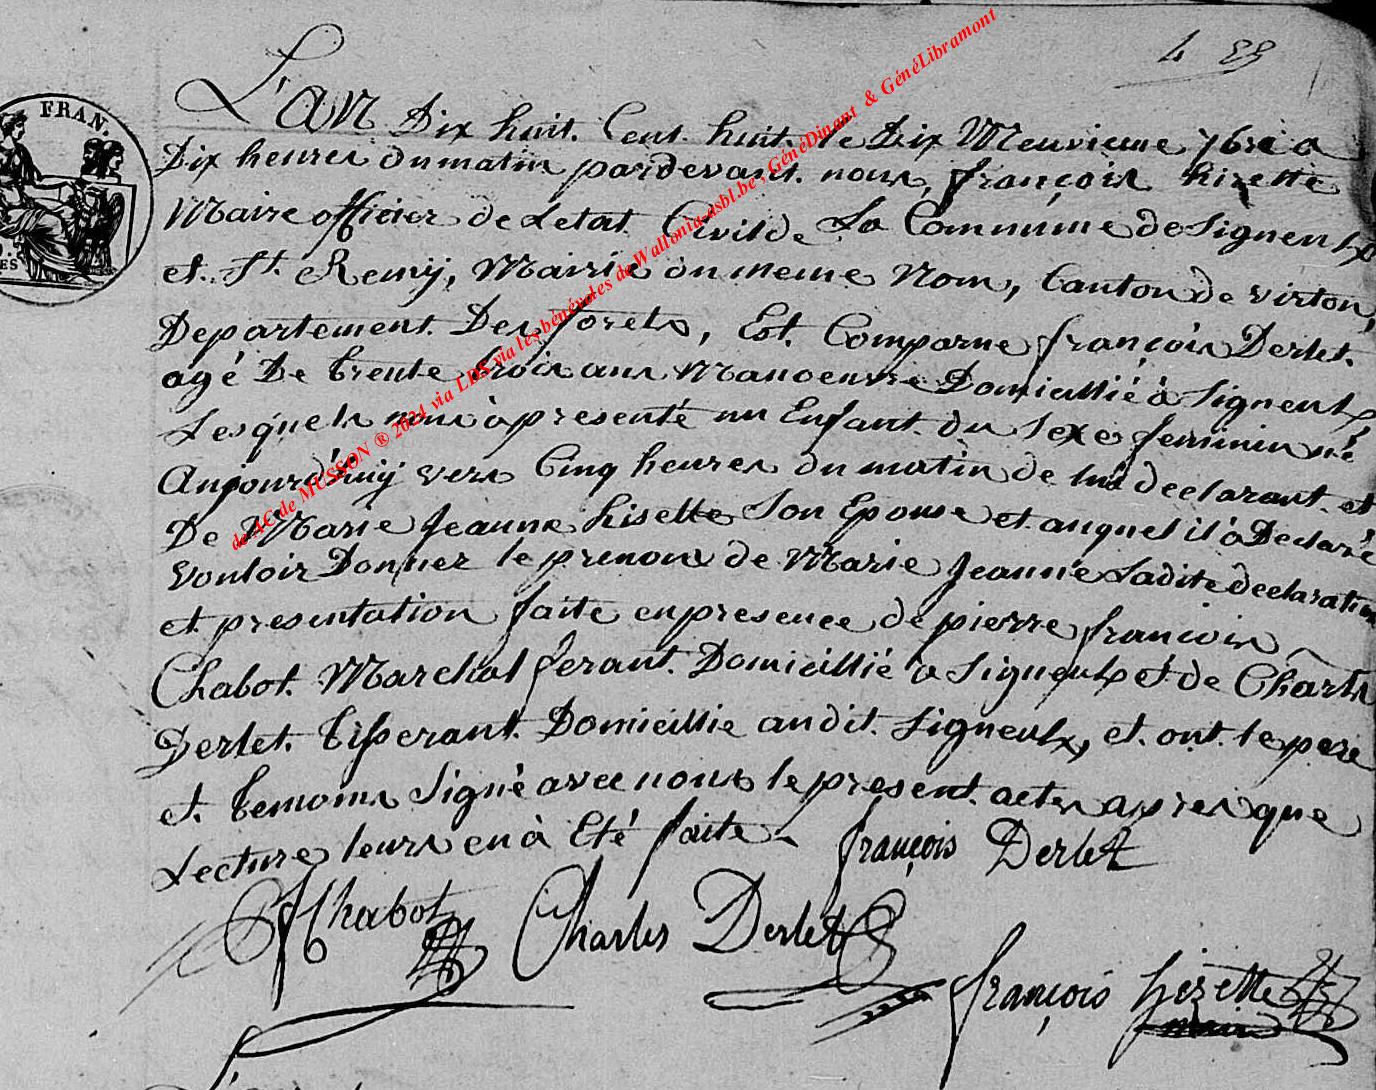 4 83
FRAN.
ES
L'an Dix huit. Cent. huit. le Dix Neuvieme 7bre a
Dix heures du matin pardevant. nous, françois hizette
Maire officier de Letat. Civil de La Commune de Signeulx
et. St. Remÿ, Mairie du meme Nom, Canton de Virton,
Departement. Des forets, Est. Comparue françois Derlet.
agé De trente trois ans Manoeuvre Domicillié à Signeulx,
Lesquels nous à presenté un Enfant. du Sexe feminin né
Aujourd'huÿ vers Cinq heures du matin de lui declarant. et
De Marie Jeanne hisette Son Epouse et auquel il à Declaré
Vouloir Donner le prenom de Marie Jeanne Ladite declaration
et presentation faite en presence de pierre francois
Chabot. Marchal ferant. Domicillié a Signeulx et de Charles
Derlet. tisserant. Domicillie audit. Signeulx, et. ont. le pere
et. temoins Signé avec nous le present. actes apres que
Lecture leurs en à Eté faite. françois Derlet
Chabot Charles Derlet
françois hizette
maire
de AC de MUSSON ® 2024 via LDS via les bénévoles de Wallonia-asbl.be , GénéDinant & GénéLibramont